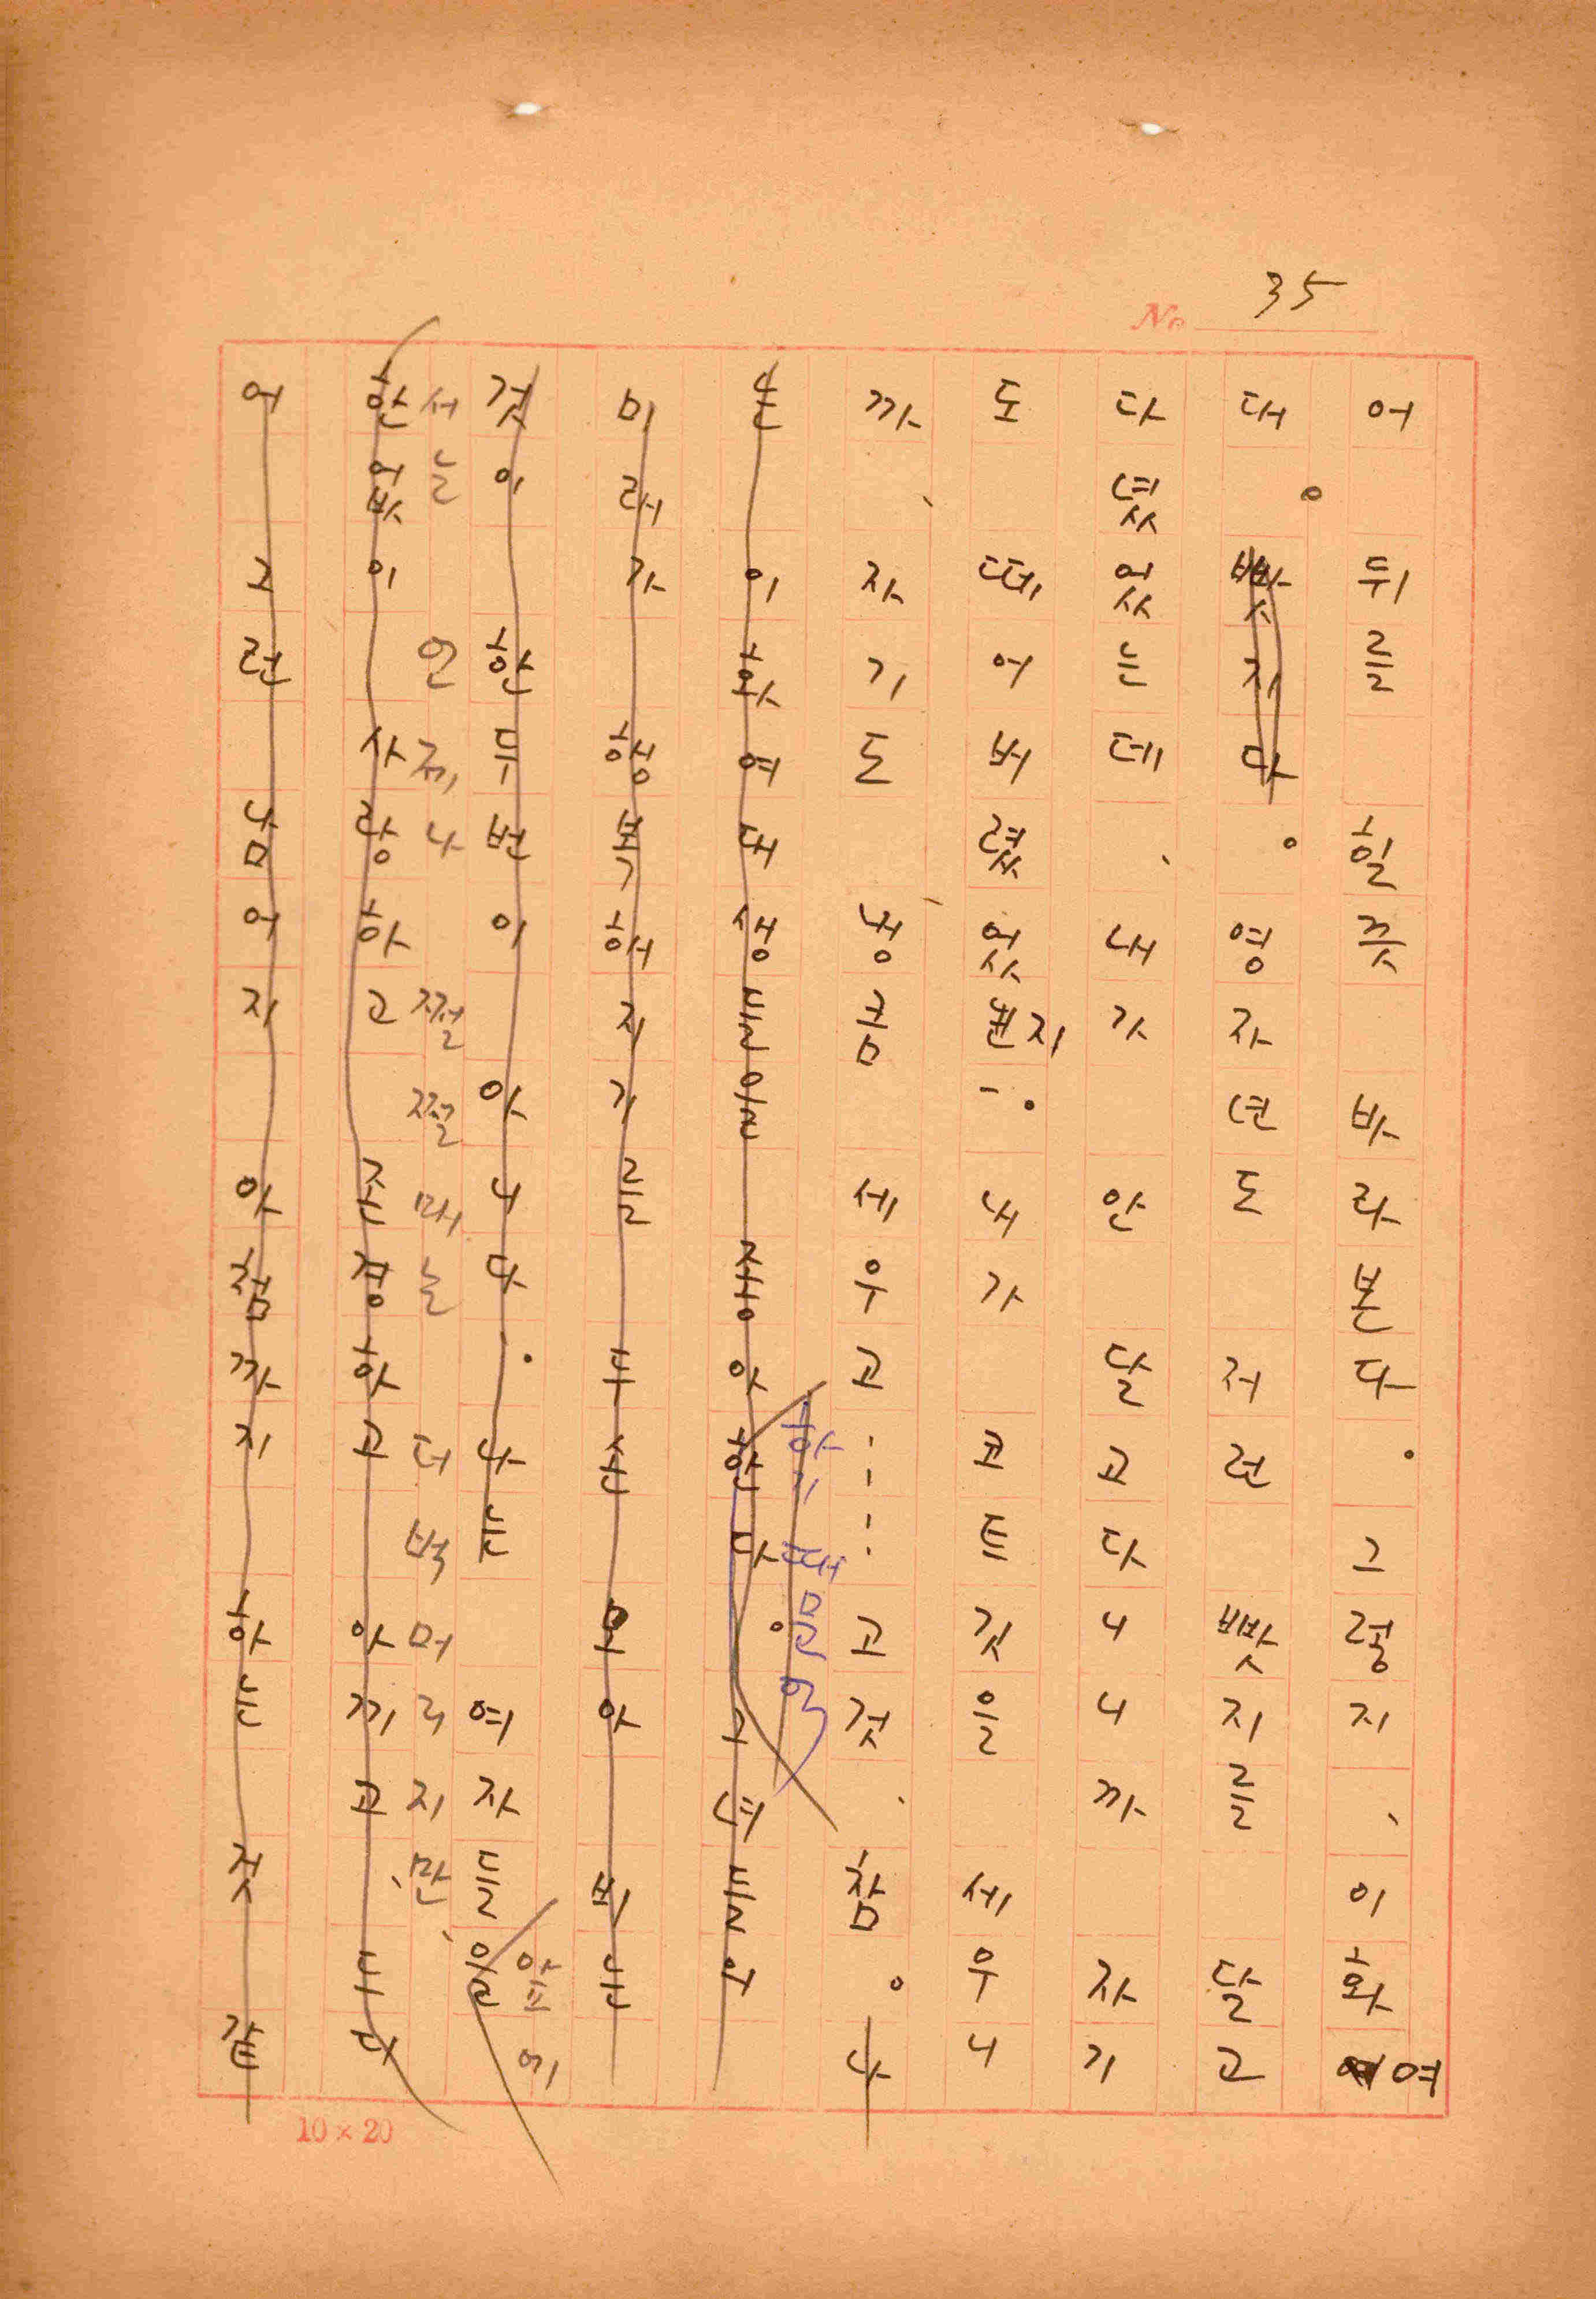 No 35
어 뒤를 힐끗 바라본다. 그렇지, 이화여
대。 뺏지다。 영자년도 저런 뺏지를 달고
다녔었는데、 내가 안 달고다니니까 자기
도 떼어버렸었지ー. 내가 코트깃을 세우니
까、 자기도 냉큼 세우고……고것、 참。 나
는 이화여대생들을 좋아한다。 그녀들의
하기 때문일
미래가 행복해지기를 두손 모아 비는
것이 한두번이 아니다. 나는 여자들을
앞에
서는 언제나 쩔쩔매는 더벅머리지만、
한없이 사랑하고 존경하고 아끼고、 누나
어 그런 남어지 아첨까지 하는 것 같
10×20